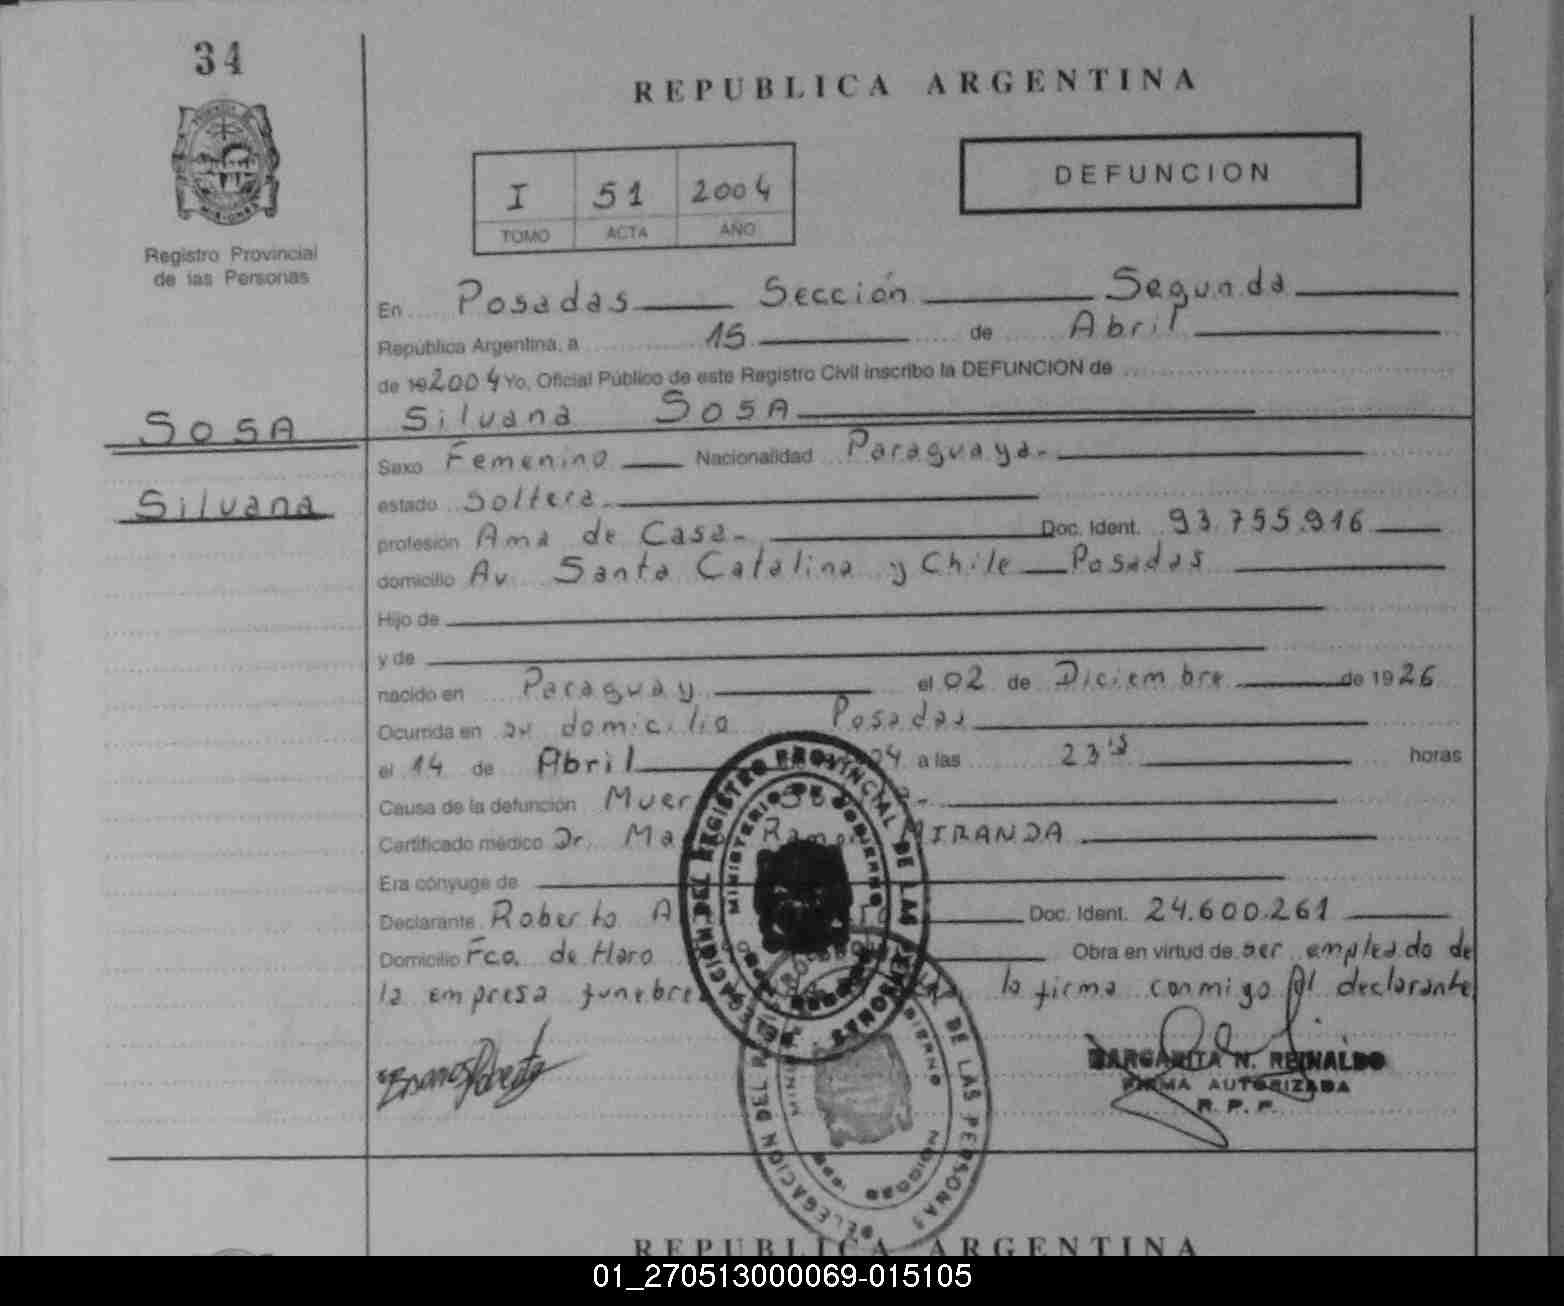 34
REPUBLICA ARGENTINA
DEFUNCION
I 51 2004
TOMO ACTA AÑO
Registro Provincial
de las Personas
En Posadas Sección Segunda
República Argentina, a 15 de Abril
de 19 2004 Yo, Oficial Público de este Registro Civil inscribo la DEFUNCION de
Silvana SOSA
SOSA
Silvana
Sexo Femenino Nacionalidad Paraguaya.-
estado Soltera.
profesión Ama de Casa.- Doc. Ident. 93.755.916
domicilio Av. Santa Catalina y Chile Posadas
Hijo de
y de
nacido en Paraguay el 02 de Diciembre de 1926
Ocurrida en su domicilio Posadas
el 14 de Abril 04 a las 23 horas
Causa de la defunción
Certificado médico Dr. Ramón MIRANDA
Era cónyuge de
Declarante Roberto Doc. Ident. 24.600.261
Domicilio Fco. de Haro Obra en virtud de ser empleado de
la empresa funebre la firma conmigo el declarante
MARGARITA N. REINALDO
FIRMA AUTORIZADA
R. P. P.
DELEGACION DEL REGISTRO PROVINCIAL DE LAS PERSONAS
MINISTERIO DE GOBIERNO
DELEGACION DEL DE LAS PERSONAS
REPUBLICA ARGENTINA
01_270513000069-015105